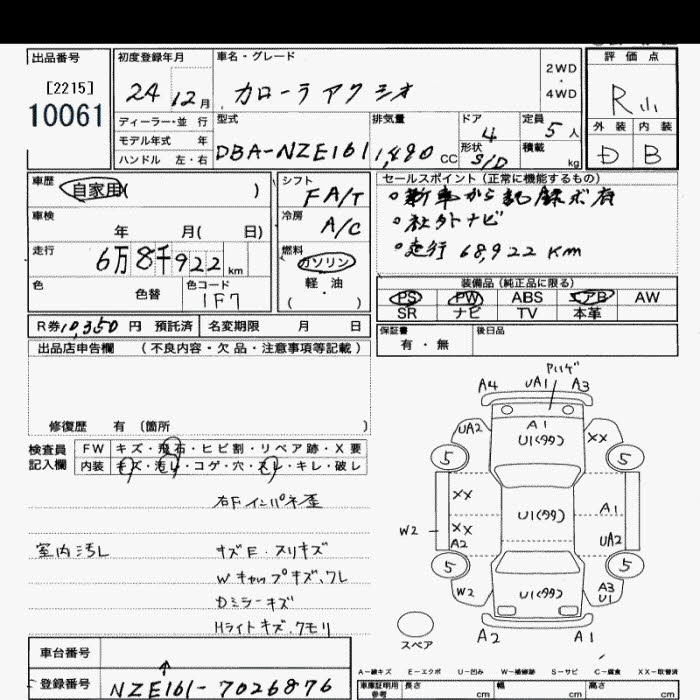 出品番号
[2215]
10061
初度登録年月
24 12月
車名・グレード
カローラアクシオ
2WD
・
4WD
評価点
R
外装 内装
D B
ディーラー・並行
モデル年式 年
ハンドル 左・右
型式
DBA-NZE161
排気量
1,490 CC
ドア
4
形状
S/D
定員
5人
積載
kg
車歴
自家用( )
車検
年 月( 日)
走行
6万8千922 km
色
色替
色コード
1F7
シフト
FA/T
冷房
A/C
燃料
ガソリン
軽・油
( )
セールスポイント(正常に機能するもの)
○新車から記録ボ有
○社外ナビ
○走行 68,922 Km
装備品(純正品に限る)
PS PW ABS エアB AW
SR ナビ TV 本革
保証書
有・無
後日品
R券10,350円 預託済 名変期限 月 日
出品店申告欄 (不良内容・欠品・注意事項等記載)
修復歴 有 (箇所 )
検査員
記入欄
FW キズ・飛石・ヒビ割・リペア跡・X要
内装 キズ・汚レ・コゲ・穴・スレ・キレ・破レ
右Fインパネ歪
室内汚レ
キズE・スリキズ
Wキャップキズ、ワレ
Dミラーキズ
Hライトキズ、クモリ
A4 UA1 A3
UA2 A1 U1(99) XX
5 5
XX
XX U1(99) A1
W2 A2 UA2
5 5
W2 U1(99) A3 U1
スペア
A2 A1
車台番号
登録番号
↑
NZE161-7026876
A-線キズ E-エクボ U-凹み W-補修跡 S-サビ C-腐食 XX-取替済
車庫証明用参考
長さ cm 幅 cm 高さ cm